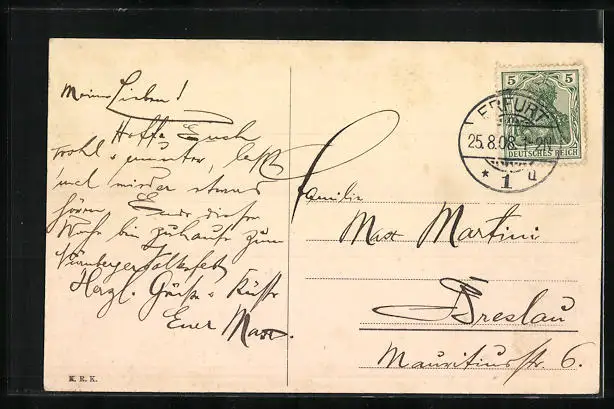 Meine Lieben!
Hoffe Euch
wohl & munter, laßt
mich wieder etwas
hören. Ende dieser
Woche bin zuhause zum
Nürnberger Volksfest
Herzl. Grüße & Küsse
Euer Max.
K. R. K.
5 5
DEUTSCHES REICH
ERFURT
25.8.08. 1-2N
* 1 u
Familie
Max Martini
Breslau
Mauritiusstr. 6.